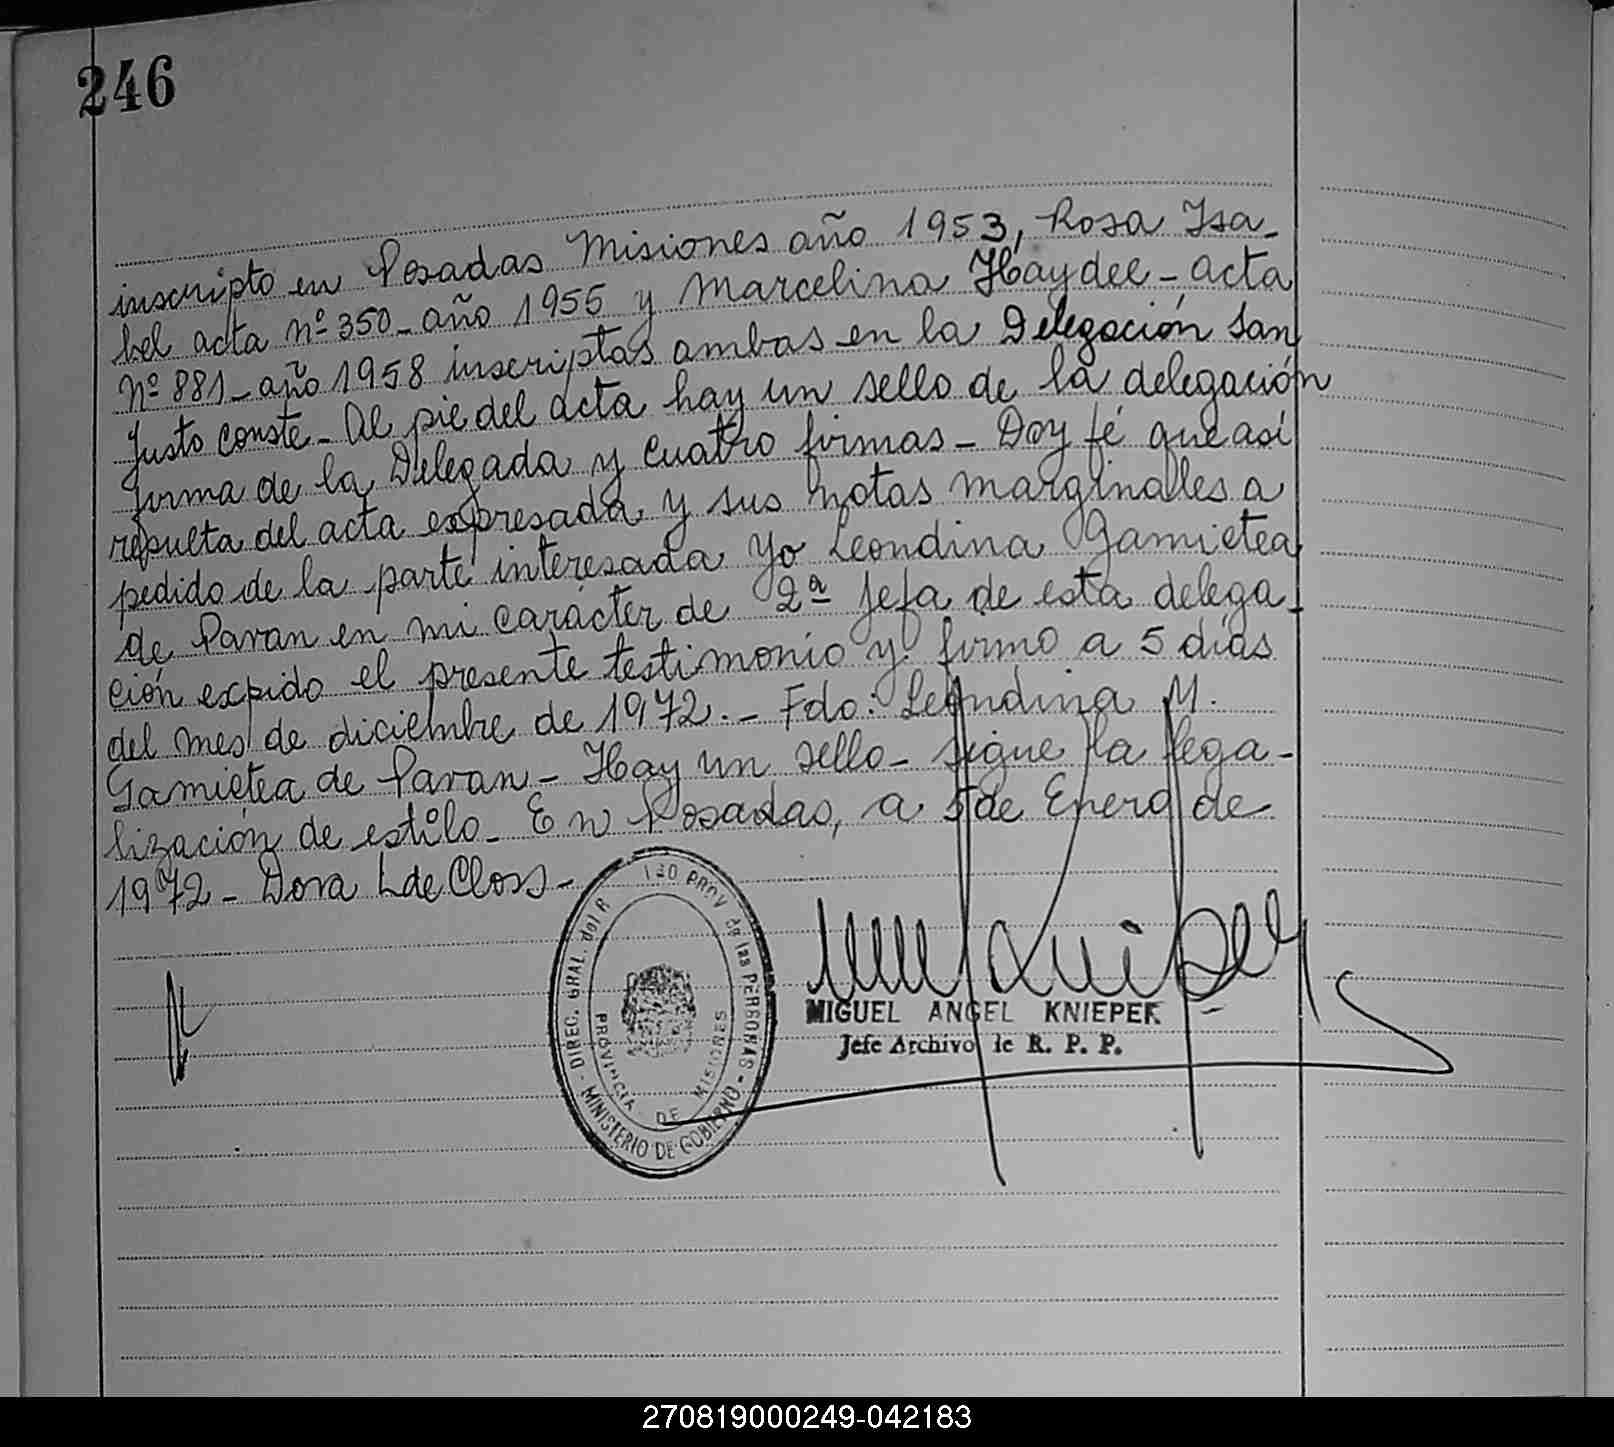 246
inscripto en Posadas Misiones año 1953, Rosa Isa-
bel acta nº 350 - año 1955 y Marcelina Haydee - acta
Nº 881 - año 1958 inscriptas ambas en la Delegación San
Justo conste - Al pie del acta hay un sello de la delegación
firma de la Delegada y cuatro firmas - Doy fé que así
resulta del acta expresada y sus notas marginales a
pedido de la parte interesada yo Leondina Gamietea
de Pavan en mi carácter de 2ª Jefa de esta delega-
ción expido el presente testimonio y firmo a 5 días
del mes de diciembre de 1972. - Fdo: Leondina M.
Gamietea de Pavan - Hay un sello - sigue la lega-
lización de estilo - En Posadas, a 5 de Enero de
1972 - Dora L de Closs -
DIREC. GRAL. del R PROV de las PERSONAS - MINISTERIO DE GOBIERNO -
PROVINCIA DE MISIONES
MIGUEL ANGEL KNIEPER
Jefe Archivo de R. P. P.
270819000249-042183